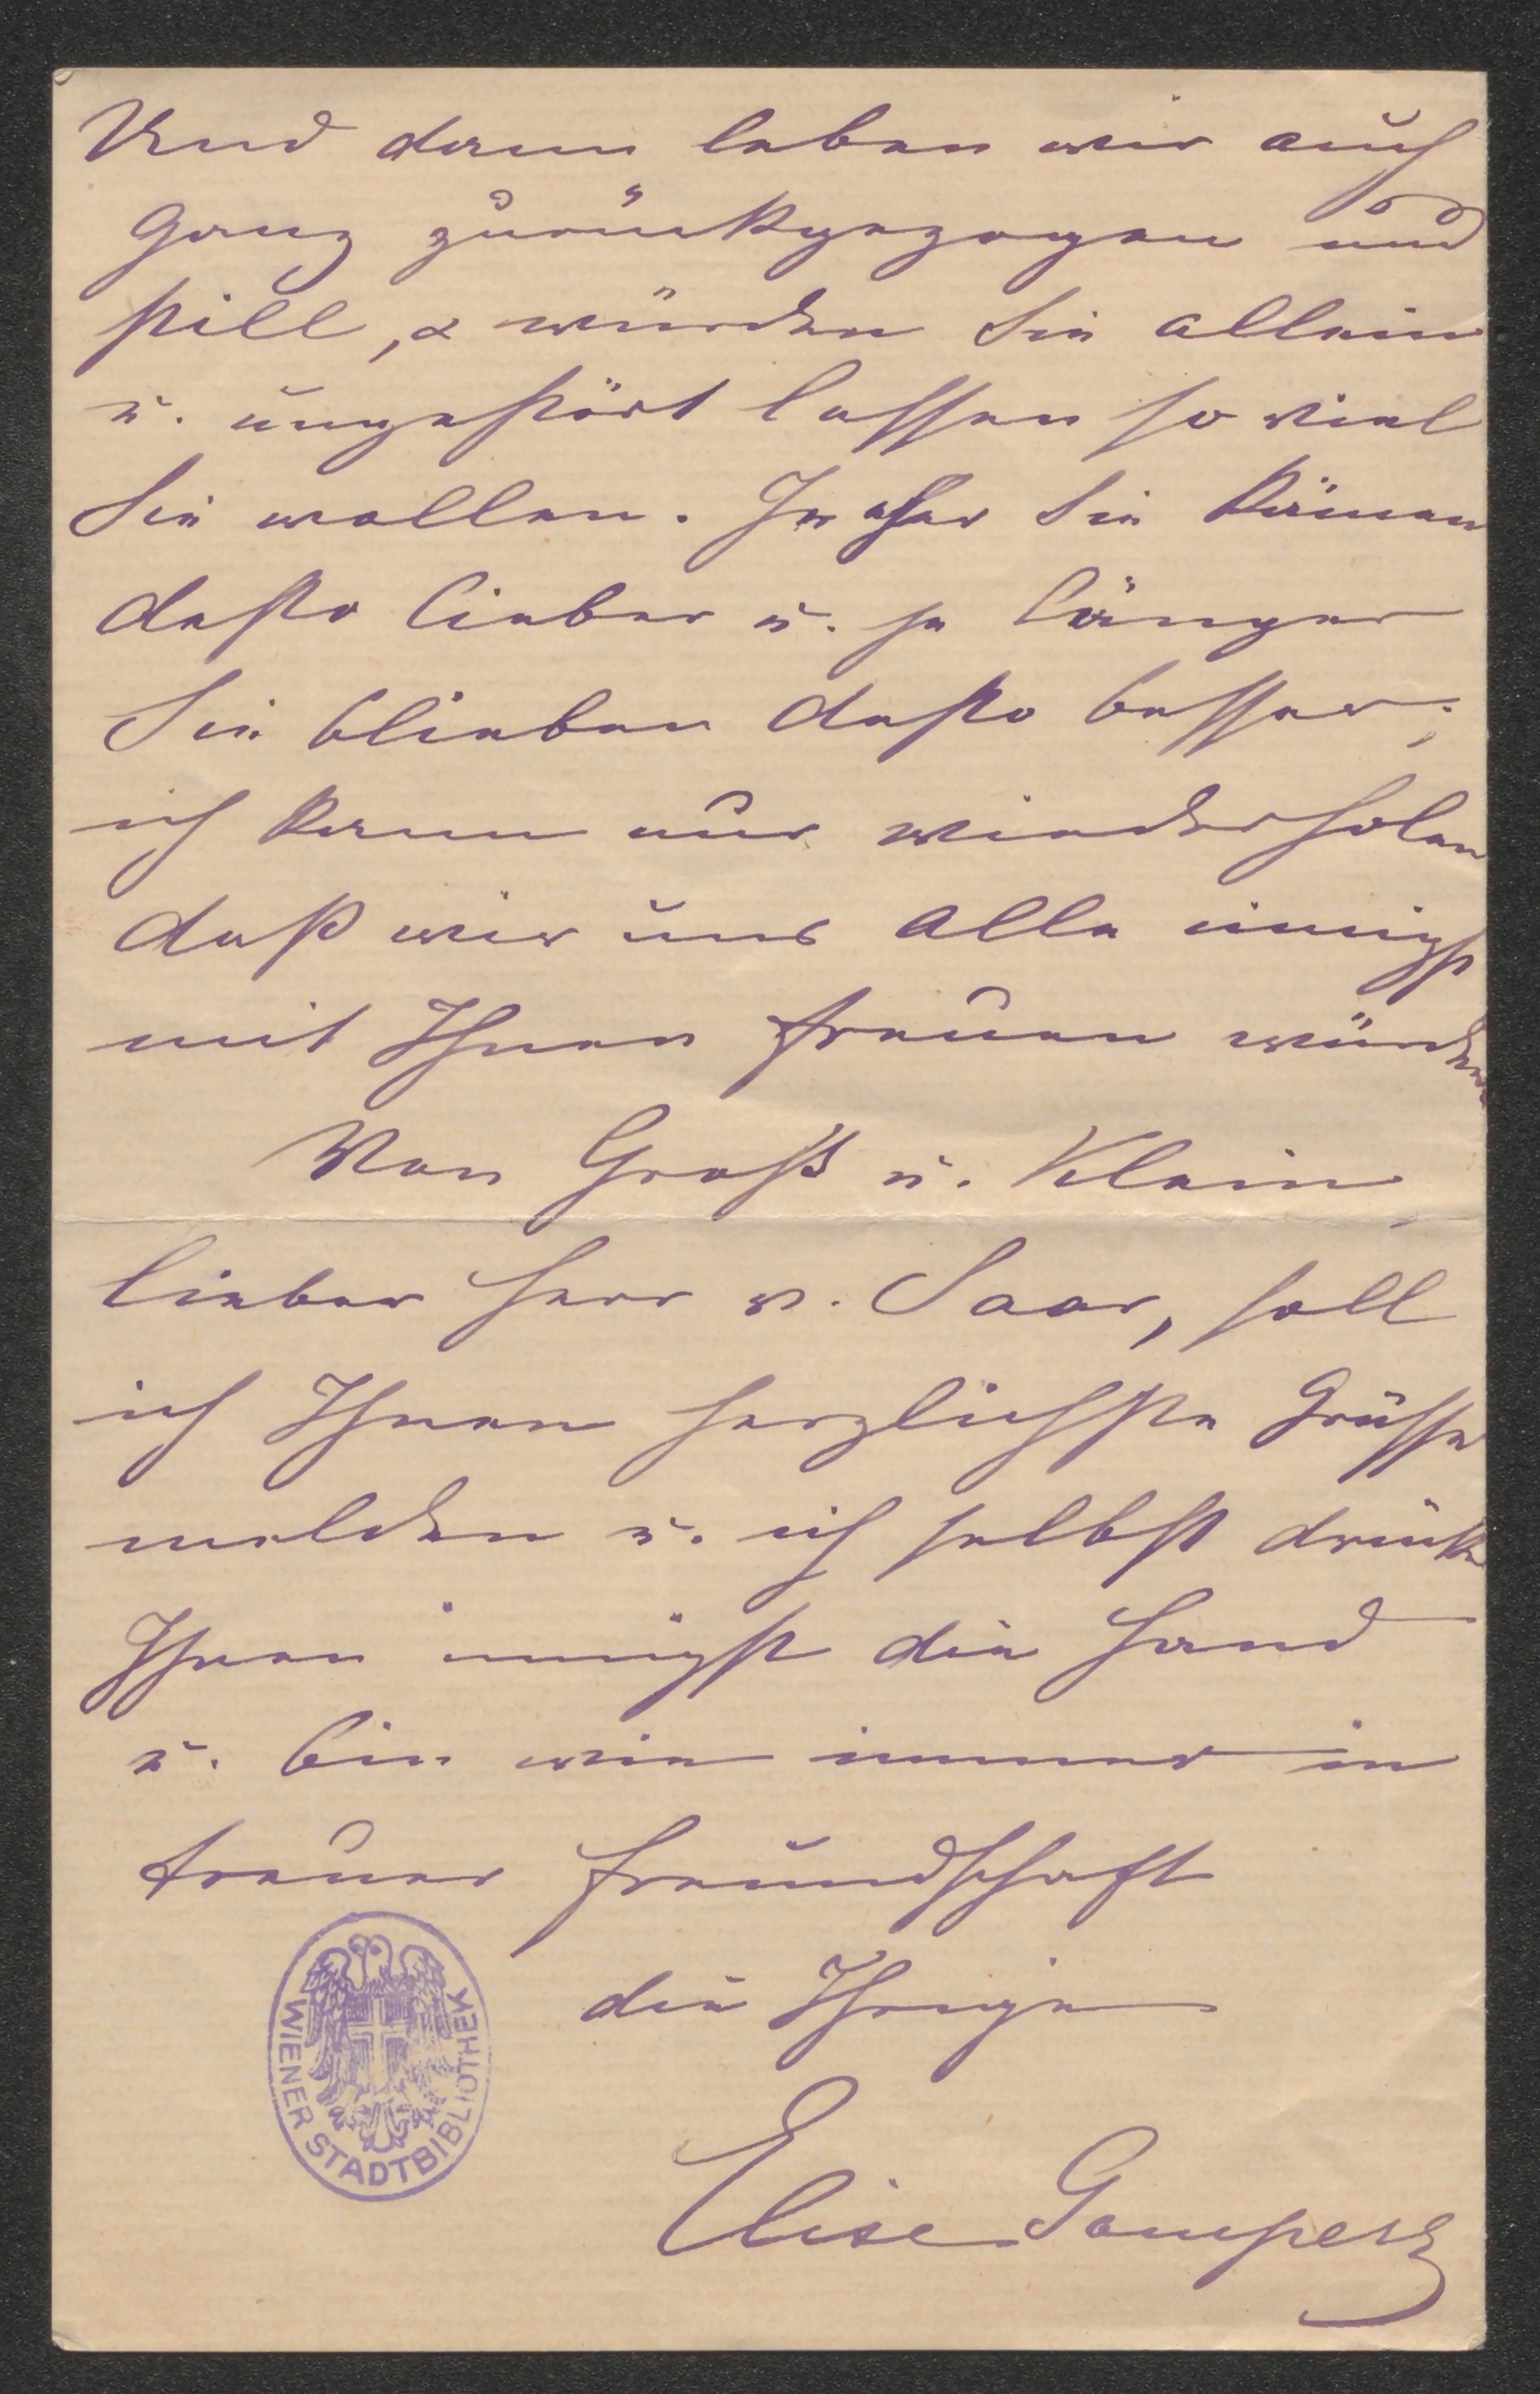 Und dann leben wir auch
ganz zurückgezogen und
still, & würden Sie allein
u. ungestört lassen so viel
Sie wollen. Je eher Sie kämen
desto lieber u. je länger
Sie blieben desto besser;
ich kann nur wiederholen
daß wir uns alle innigst
mit Ihnen freuen würden
Von Groß u. Klein,
lieber Herr v. Saar, soll
ich Ihnen herzlichste Grüsse
melden u. ich selbst drücke
Ihnen innigst die Hand
u. bin wie immer in
treuer Freundschaft
die Ihrige
Elise Gomperz
WIENER STADTBIBLIOTHEK